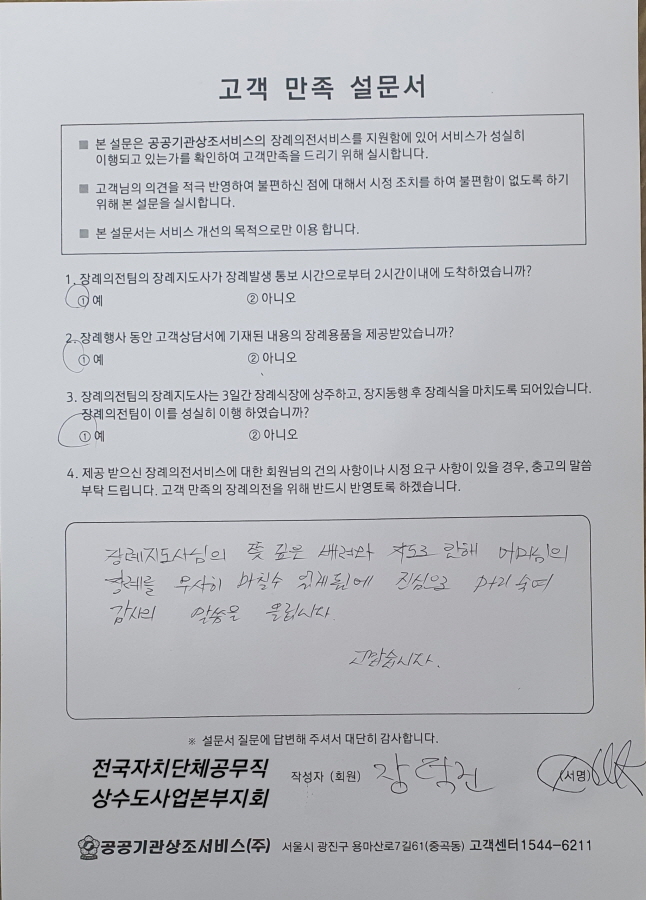 고객 만족 설문서
■ 본 설문은 공공기관상조서비스의 장례의전서비스를 지원함에 있어 서비스가 성실히
이행되고 있는가를 확인하여 고객만족을 드리기 위해 실시합니다.
■ 고객님의 의견을 적극 반영하여 불편하신 점에 대해서 시정 조치를 하여 불편함이 없도록 하기
위해 본 설문을 실시합니다.
■ 본 설문서는 서비스 개선의 목적으로만 이용 합니다.
1. 장례의전팀의 장례지도사가 장례발생 통보 시간으로부터 2시간이내에 도착하였습니까?
① 예 ② 아니오
2. 장례행사 동안 고객상담서에 기재된 내용의 장례용품을 제공받았습니까?
① 예 ② 아니오
3. 장례의전팀의 장례지도사는 3일간 장례식장에 상주하고, 장지동행 후 장례식을 마치도록 되어있습니다.
장례의전팀이 이를 성실히 이행 하였습니까?
① 예 ② 아니오
4. 제공 받으신 장례의전서비스에 대한 회원님의 건의 사항이나 시정 요구 사항이 있을 경우, 충고의 말씀
부탁 드립니다. 고객 만족의 장례의전을 위해 반드시 반영토록 하겠습니다.
장례지도사님의 뜻 깊은 배려와 지도로 인해 어머님의
장례를 무사히 마칠수 있게됨에 진심으로 머리 숙여
감사의 말씀을 올립니다.
고맙습니다.
※ 설문서 질문에 답변해 주셔서 대단히 감사합니다.
전국자치단체공무직
상수도사업본부지회
작성자 (회원) 장 (서명)
공공기관상조서비스(주) 서울시 광진구 용마산로7길61(중곡동) 고객센터1544-6211